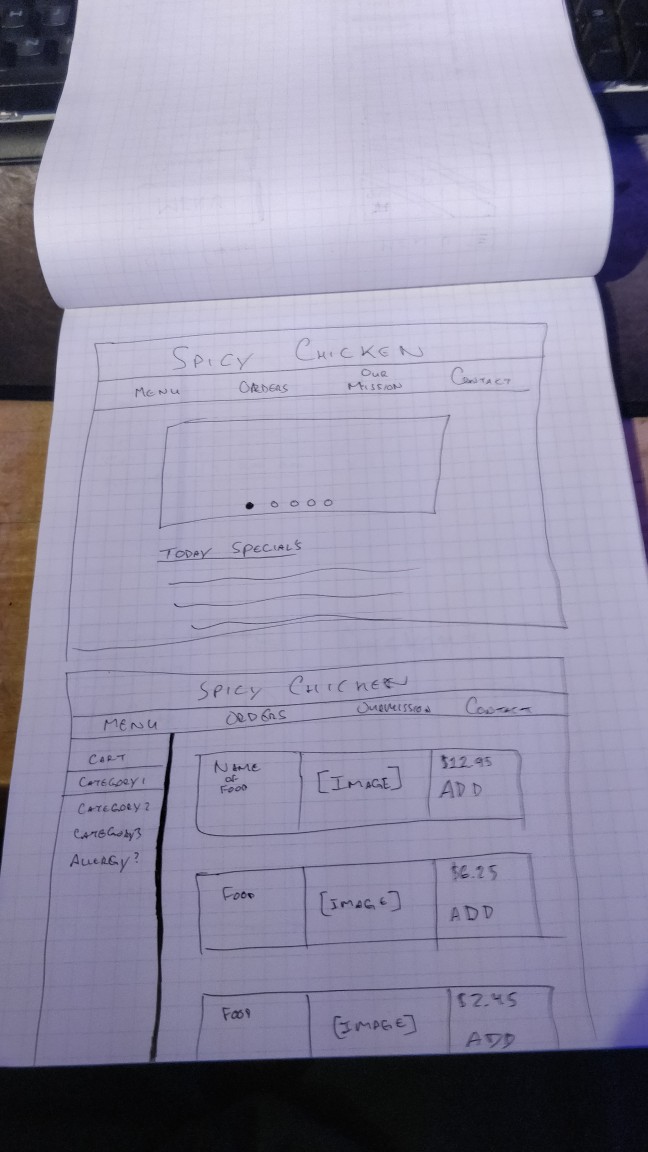 SPICY CHICKEN
MENU ORDERS OUR MISSION CONTACT
TODAY SPECIALS
SPICY CHICKEN
MENU ORDERS OUR MISSION CONTACT
CART
CATEGORY 1
CATEGORY 2
CATEGORY 3
ALLERGY?
NAME
OF
FOOD
[IMAGE]
$12.95
ADD
FOOD
[IMAGE]
$6.25
ADD
FOOD
[IMAGE]
$2.45
ADD